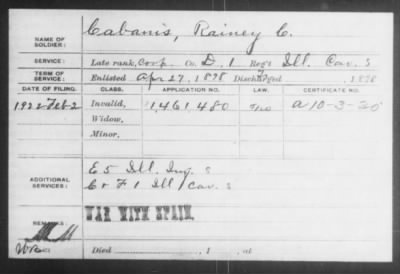 NAME OF SOLDIER: Cabanis, Rainey C.
SERVICE: Late rank, Corp. Co. D, 1 Reg't Ill. Cav. S
TERM OF SERVICE: Enlisted Apr 27, 1898 Discharged , 1898
DATE OF FILING. CLASS. APPLICATION NO. LAW. CERTIFICATE NO.
1922 Feb 2 Invalid, 1,461,480 a 10-3-25
Widow,
Minor,
ADDITIONAL SERVICES: E 5 Ill. Inf. S
C & F 1 Ill Cav. S
WAR WITH SPAIN.
REMARKS:
Died , 1 , at